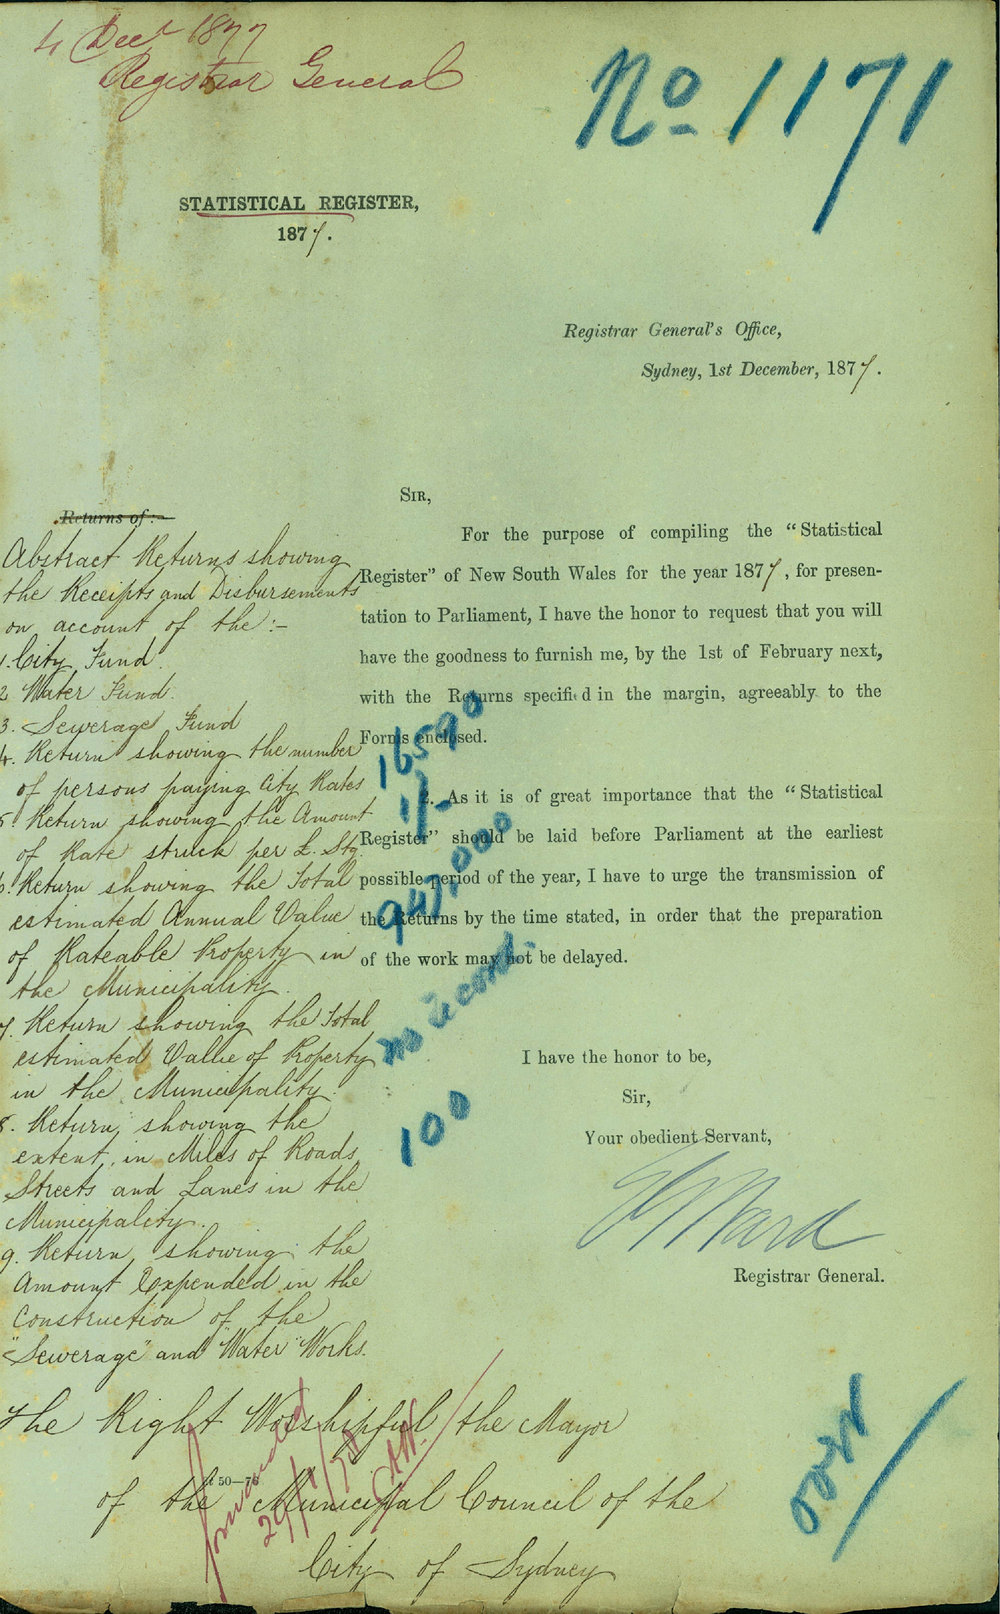 4 Decr 1877
Registrar General
No 1171
STATISTICAL REGISTER,
1877.
Registrar General's Office,
Sydney, 1st December, 1877.
Returns of:—
Abstract Returns showing
the Receipts and Disbursements
on account of the:-
1. City Fund.
2 Water Fund.
3. Sewerage Fund
4. Return showing the number
of persons paying City Rates
5. Return showing the Amount
of Rate struck per £. Stg.
6. Return showing the Total
estimated Annual Value
of Rateable Property in
the Municipality.
7. Return showing the Total
estimated Value of Property
in the Municipality.
8. Return, showing the
extent, in Miles of Roads,
Streets and Lanes in the
Municipality.
9. Return, showing the
Amount Expended in the
Construction of the
"Sewerage" and "Water" Works.
SIR,
For the purpose of compiling the "Statistical
Register" of New South Wales for the year 1877, for presen-
tation to Parliament, I have the honor to request that you will
have the goodness to furnish me, by the 1st of February next,
with the Returns specified in the margin, agreeably to the
Forms enclosed.
2. As it is of great importance that the "Statistical
Register" should be laid before Parliament at the earliest
possible period of the year, I have to urge the transmission of
the Returns by the time stated, in order that the preparation
of the work may not be delayed.
16590
1/-
947,000
no record.
100
I have the honor to be,
Sir,
Your obedient Servant,
Ward
Registrar General.
The Right Worshipful / the Mayor
of the Municipal Council of the
City of Sydney
50—76
forwarded